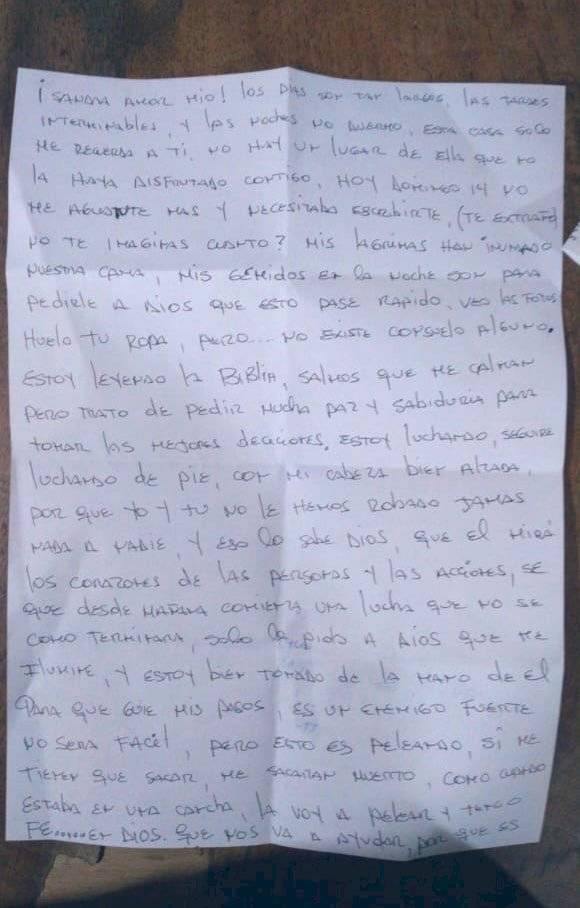 ¡SANDRA AMOR MIO! los DIAS SON TAN lARGOS, lAS TARDES
INTERMINABLES, Y lAS NOCHES NO DUERMO, ESTA CASA SOLO
ME RECUERDA A TI, NO HAY UN lUGAR de EllA QUE NO
lA HAYA DISFRUTADO CONTIGO, HOY DOMINGO 14 NO
ME AGUANTE MAS Y NECESITABA ESCRIBIRTE, (TE EXTRAÑO
NO TE IMAGINAS CUANTO? MIS lAGRIMAS HAN INUNDADO
NUESTRA CAMA, MIS GEMIDOS EN lA NOCHE SON PARA
PEdIRlE A DIOS QUE ESTO PASE RAPIDO. VEO lAS FOTOS
HUElO TU ROPA, PERO... NO EXISTE CONSUElO AlGUNO.
ESTOY lEYENDO lA BIBLIA, SAlMOS QUE ME CAlMAN
PERO TRATO de PEdIR MUCHA PAZ Y SABIDURIA PARA
TOMAR lAS MEJORES dECICIONES. ESTOY lUCHANDO, SEGUIRE
lUCHANDO DE PIE, CON MI CABEZA BIEN AlZADA,
POR QUE YO Y TU NO lE HEMOS ROBADO JAMAS
NADA A NADIE, Y ESO lO SABE DIOS, QUE El MIRA
lOS CORAZONES DE LAS PERSONAS Y lAS ACCIONES, SE
QUE dESDE MAÑANA COMIENZA UNA lUCHA QUE NO SE
COMO TERMINARA, SOlO le pido A DIOS QUE ME
IlUMINE, Y ESTOY BIEN TOMADO de lA MANO DE El
PARA QUE GUIE MIS PASOS, ES UN ENEMIGO FUERTE
NO SERA FACIl, PERO ESTO ES PElEANDO, SI ME
TIENEN QUE SACAR, ME SACARAN MUERTO, COMO CUANDO
ESTABA EN UNA CANCHA, lA VOY A PElEAR Y TENGO
FE......EN DIOS. QUE NOS VA A AYUDAR, POR QUE ES